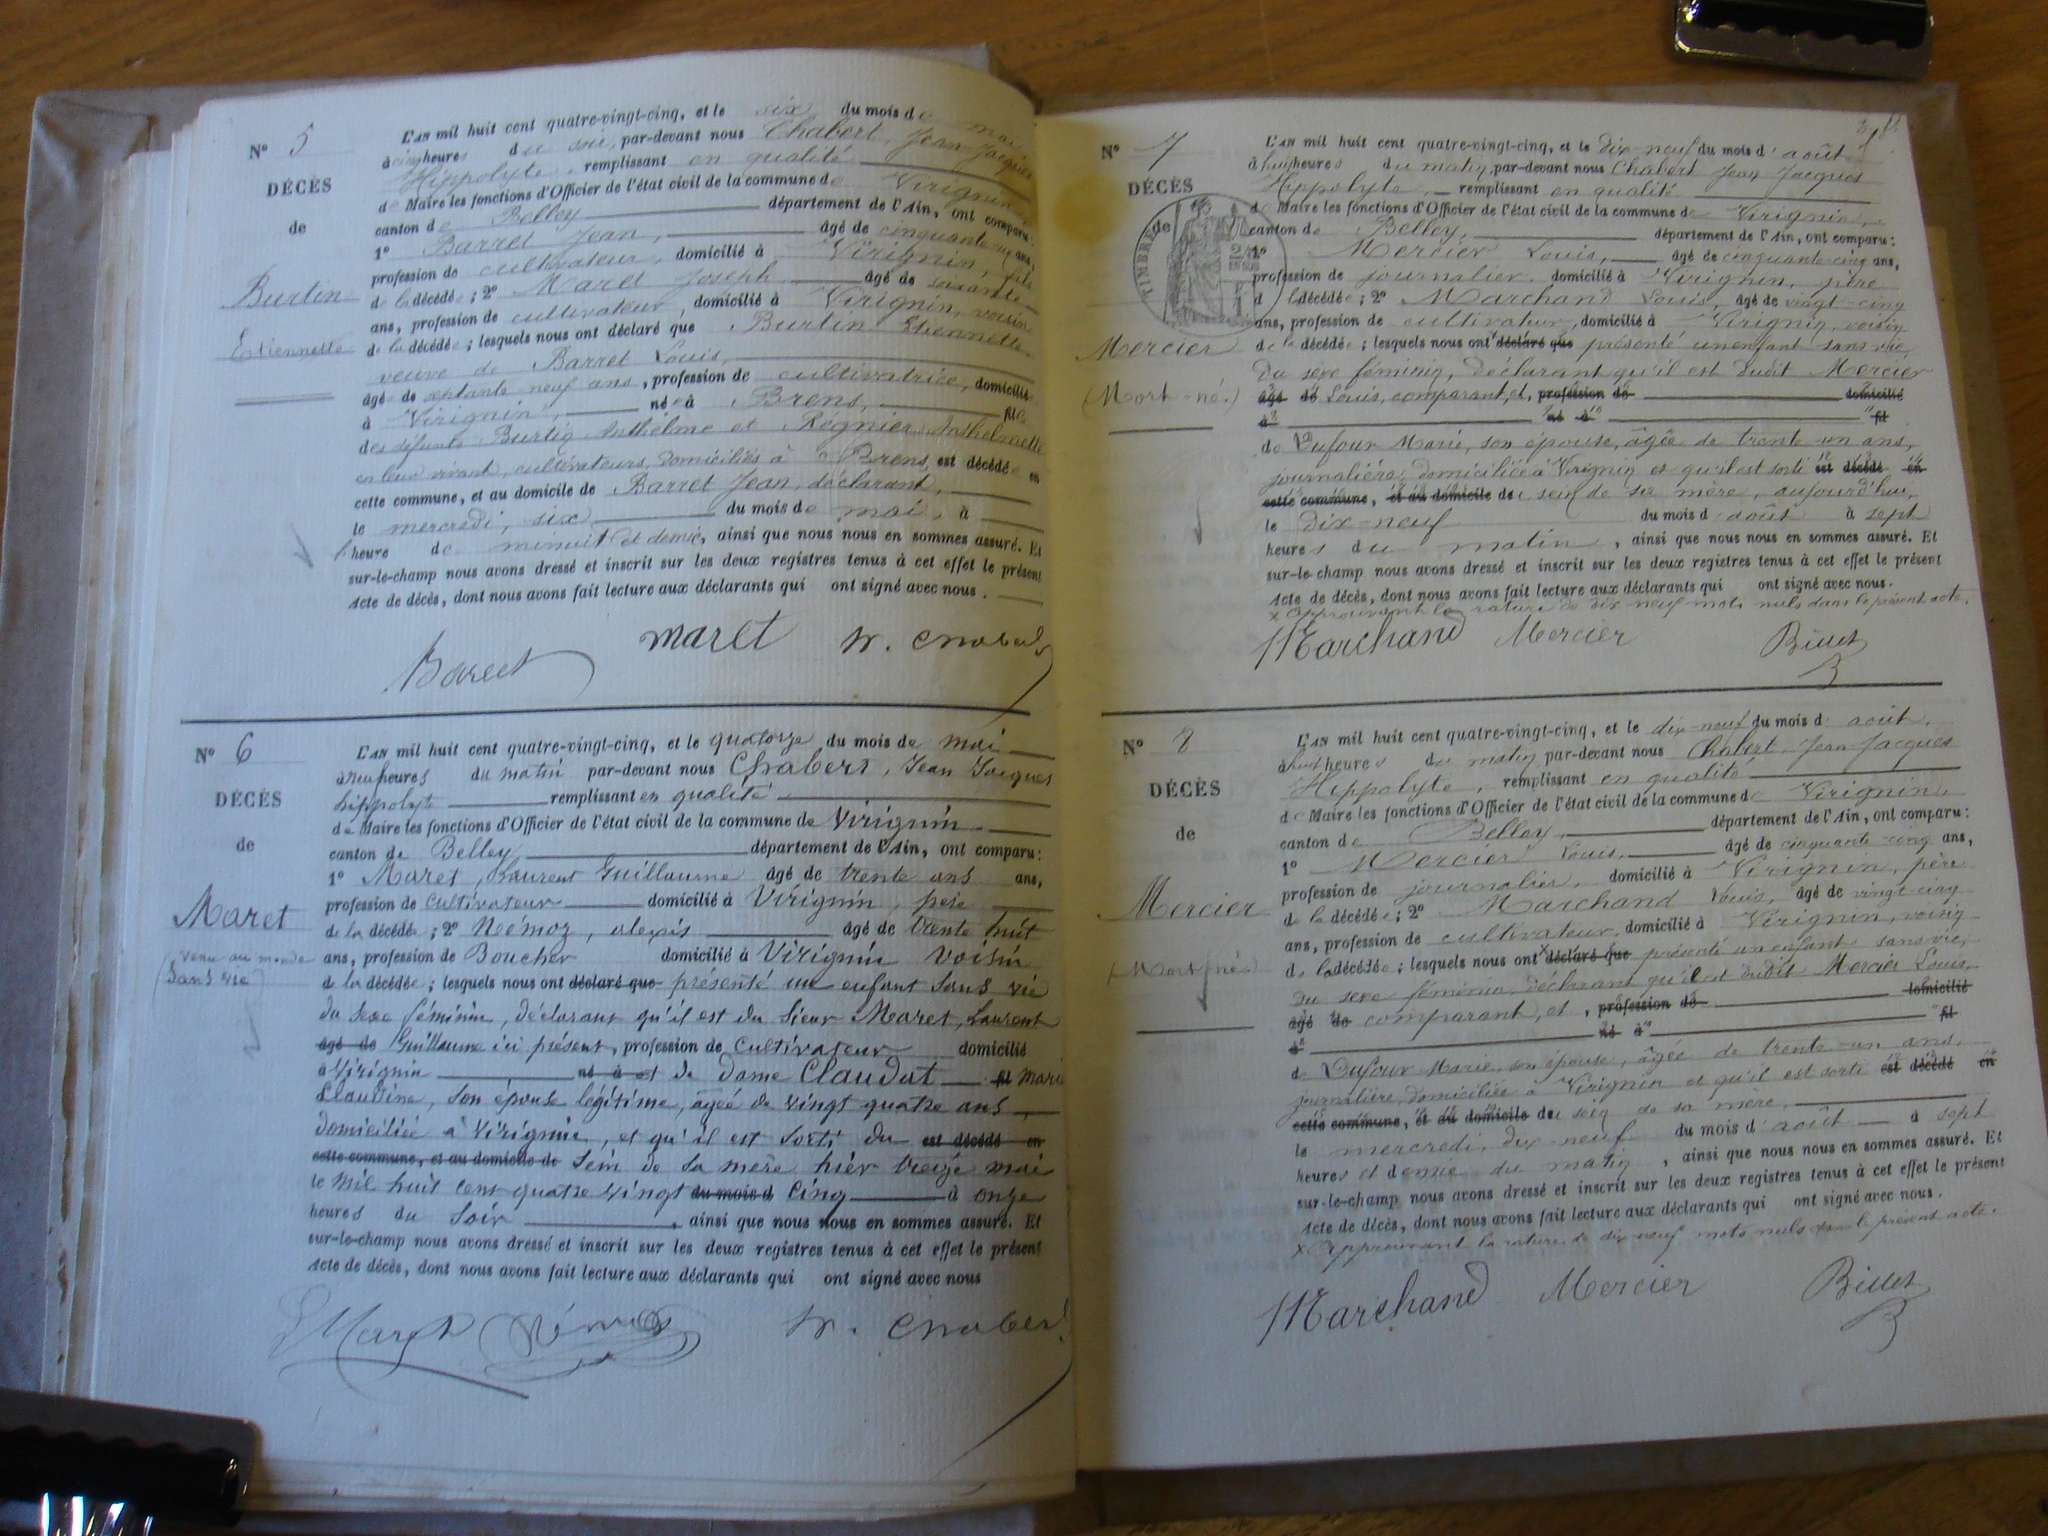 N° 5
DÉCÈS
de
Burtin
Etiennette
L'AN mil huit cent quatre-vingt-cinq, et le six du mois de mai
à cinq heures du soir, par-devant nous Chabert, Jean Jacques
Hippolyte, remplissant en qualité
de Maire les fonctions d'Officier de l'état civil de la commune de Virignin,
canton de Belley département de l'Ain, ont comparu:
1° Barret Jean, âgé de cinquante ans,
profession de cultivateur, domicilié à Virignin, fils
de la décédée; 2° Maret Joseph âgé de soixante
ans, profession de cultivateur, domicilié à Virignin, voisin
de la décédée; lesquels nous ont déclaré que Burtin Etiennette
veuve de Barret Louis,
âgée de septante neuf ans, profession de cultivatrice, domicilié
à Virignin, née à Brens, fille
des défunts Burtin Anthelme et Régnier Anthelmette
en leur vivant, cultivateurs, domiciliés à Brens, est décédée en
cette commune, et au domicile de Barret Jean, déclarant,
le mercredi, six du mois de mai, à
heure de minuit et demie, ainsi que nous nous en sommes assuré. Et
sur-le-champ nous avons dressé et inscrit sur les deux registres tenus à cet effet le présent
Acte de décès, dont nous avons fait lecture aux déclarants qui ont signé avec nous.
Barret maret H. Chabert
N° 6
DÉCÈS
de
Maret
venu au monde
(sans vie)
L'AN mil huit cent quatre-vingt-cinq, et le quatorze du mois de mai
à neuf heures du matin par-devant nous Chabert, Jean Jacques
hippolyte remplissant en qualité
de Maire les fonctions d'Officier de l'état civil de la commune de Virignin
canton de Belley département de l'Ain, ont comparu:
1° Maret, Laurent Guillaume âgé de trente ans ans,
profession de cultivateur domicilié à Virignin, père
de la décédée; 2° Némoz, alexis âgé de trente huit
ans, profession de Boucher domicilié à Virignin voisin
de la décédée; lesquels nous ont déclaré que présenté un enfant sans vie
du sexe féminin, déclarant qu'il est du sieur Maret, Laurent
âgé de Guillaume ici présent, profession de cultivateur domicilié
à Virignin né à et de dame Claudat fil Marie
Claudine, son épouse légitime, âgée de vingt quatre ans,
domiciliée à Virignin, et qu'il est sorti du est décédé en
cette commune, et au domicile de sein de sa mère hier treize mai
le mil huit cent quatre vingt du mois d cinq à onze
heures du soir, ainsi que nous nous en sommes assuré. Et
sur-le-champ nous avons dressé et inscrit sur les deux registres tenus à cet effet le présent
Acte de décès, dont nous avons fait lecture aux déclarants qui ont signé avec nous
L Maret Némoz H. Chabert
N° 7
DÉCÈS
de
TIMBRE
Mercier
(Mort-né)
L'AN mil huit cent quatre-vingt-cinq, et le dix-neuf du mois d'août
à huit heures du matin, par-devant nous Chabert Jean Jacques
Hippolyte, remplissant en qualité
de Maire les fonctions d'Officier de l'état civil de la commune de Virignin,
canton de Belley, département de l'Ain, ont comparu:
1° Mercier Louis, âgé de cinquante-cinq ans,
profession de journalier, domicilié à Virignin, père
de la décédée; 2° Marchand Louis, âgé de vingt-cinq
ans, profession de cultivateur, domicilié à Virignin, voisin
de la décédée; lesquels nous ont déclaré que présenté un enfant sans vie,
du sexe féminin, déclarant qu'il est dudit Mercier
âgé de Louis, comparant, et, profession de domicilié
à né à fil
de Dufour Marie, son épouse, âgée de trente un ans,
journalière, domiciliée à Virignin et qu'il est sorti est décédé en
cette commune, et au domicile du sein de sa mère, aujourd'hui,
le dix-neuf du mois d'août à sept
heures du matin, ainsi que nous nous en sommes assuré. Et
sur-le-champ nous avons dressé et inscrit sur les deux registres tenus à cet effet le présent
Acte de décès, dont nous avons fait lecture aux déclarants qui ont signé avec nous.
x Approuvant la rature de dix-neuf mots nuls dans le présent acte.
Marchand Mercier Billet
N° 8
DÉCÈS
de
Mercier
(Mort-né)
L'AN mil huit cent quatre-vingt-cinq, et le dix-neuf du mois d'août,
à huit heures du matin, par-devant nous Chabert, Jean Jacques
Hippolyte, remplissant en qualité
de Maire les fonctions d'Officier de l'état civil de la commune de Virignin,
canton de Belley, département de l'Ain, ont comparu:
1° Mercier Louis, âgé de cinquante-cinq ans,
profession de journalier, domicilié à Virignin, père
de la décédée; 2° Marchand Louis, âgé de vingt-cinq
ans, profession de cultivateur, domicilié à Virignin, voisin
de la décédée; lesquels nous ont déclaré que présenté un enfant sans vie,
du sexe féminin, déclarant qu'il est dudit Mercier Louis
âgé de comparant, et, profession de domicilié
à né à fil
de Dufour Marie, son épouse, âgée de trente-un ans,
journalière, domiciliée à Virignin et qu'il est sorti est décédé en
cette commune, et au domicile du sein de sa mère,
le mercredi, dix-neuf du mois d'août à sept
heures et demie du matin, ainsi que nous nous en sommes assuré. Et
sur-le-champ nous avons dressé et inscrit sur les deux registres tenus à cet effet le présent
Acte de décès, dont nous avons fait lecture aux déclarants qui ont signé avec nous.
x Approuvant la rature de dix-neuf mots nuls dans le présent acte.
Marchand Mercier Billet